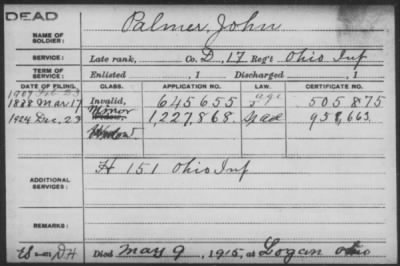 DEAD
NAME OF SOLDIER: Palmer, John
SERVICE: Late rank, Co. D, 17 Reg't Ohio Inf
TERM OF SERVICE: Enlisted , 1 Discharged , 1
DATE OF FILING. CLASS. APPLICATION NO. LAW. CERTIFICATE NO.
1907 Feb
1888 Mar 17 Invalid, 645655 age 505875
1924 Dec. 23 Minor 1,227,868 958,663
Widow
ADDITIONAL SERVICES: H 151 Ohio Inf
REMARKS:
Died May 9, 1915, at Logan Ohio